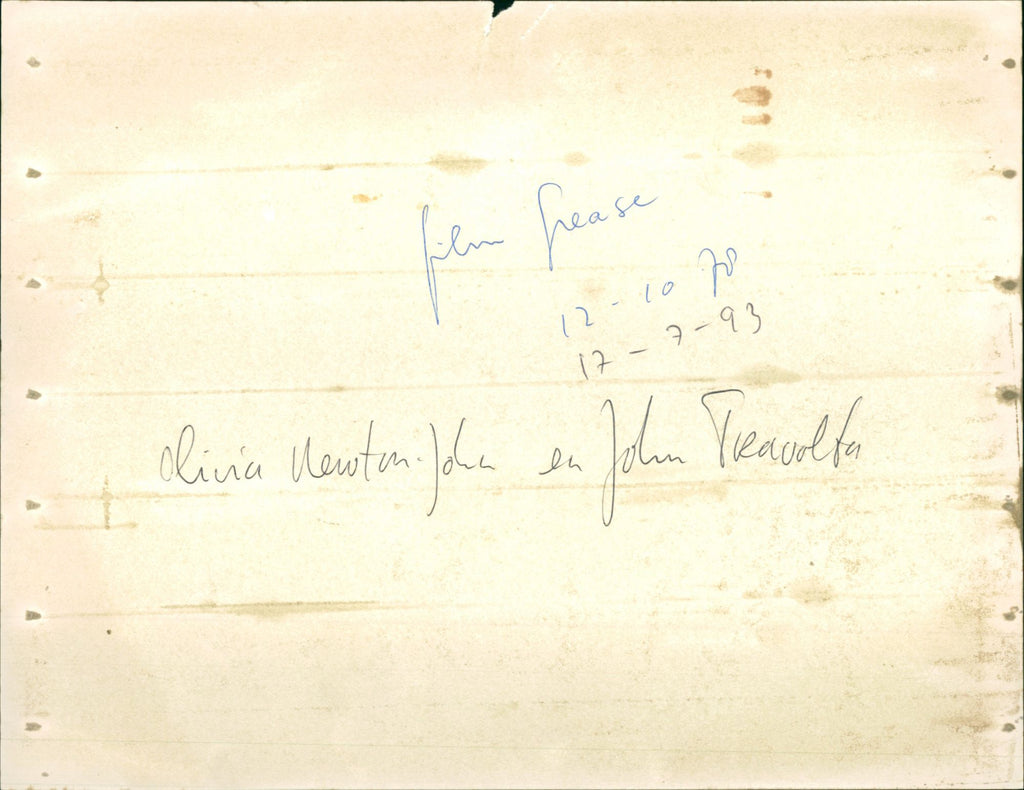 film Grease
12-10 78
17-7-93
Olivia Newton-John en John Travolta